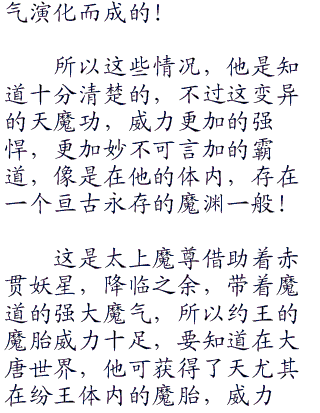 气演化而成的！
所以这些情况，他是知
道十分清楚的，不过这变异
的天魔功，威力更加的强
悍，更加妙不可言加的霸
道，像是在他的体内，存在
一个亘古永存的魔渊一般！
这是太上魔尊借助着赤
贯妖星，降临之余，带着魔
道的强大魔气，所以约王的
魔胎威力十足，要知道在大
唐世界，他可获得了天尤其
在纷王体内的魔胎，威力